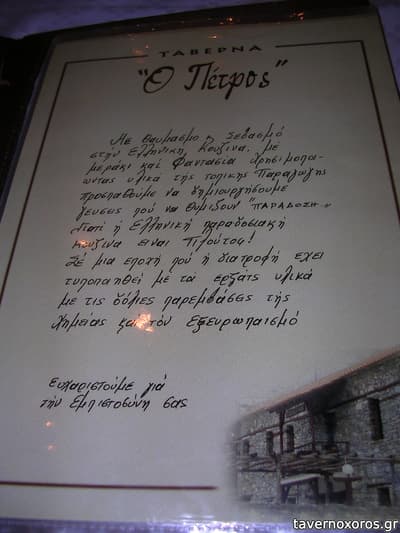 ΤΑΒΕΡΝΑ
"Ο Πέτρος"
Με θαυμασμο κ Σεβασμό
στήν Ελληνική Κουζινα, με
μεράκι καί Φαντασία χρησιμοποι-
ωντας υλικά τής τοπικής Παραγωγής
προσπαθούμε να δημιουργήσουμε
γευσεις πού να θυμιζουν "ΠΑΡΑΔΟΣΗ"
Γιατί ή Ελληνική παραδοσιακή
κουζινα ειναι Πλούτος!
Σέ μια εποχή πού ή διατροφή εχει
τυποποιηθεί με τά ερζάτς υλικά
με τις δόλιες παρεμβάσεις τής
Χημείας και τόν εξευρωπαισμό
ευχαριστούμε γιά
τήν Εμπιστοσύνη σας
tavernoxoros.gr